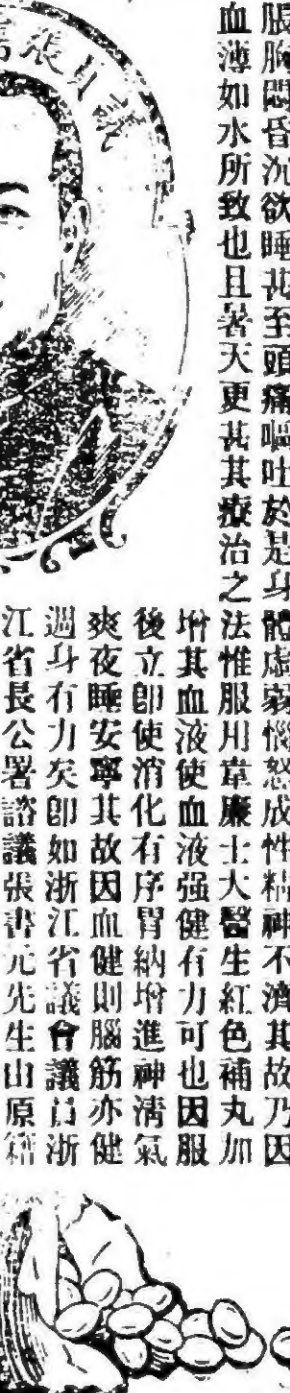 脹胸悶昏沉欲睡甚至頭痛嘔吐於是身體虛弱惱怒成性精神不濟其故乃因
血薄如水所致也且暑天更甚其療治之法惟服用韋廉士大醫生紅色補丸加
增其血液使血液强健有力可也因服
後立卽使消化有序胃納增進神淸氣
爽夜睡安寧其故因血健則腦筋亦健
週身有力矣卽如浙江省議會議員浙
江省長公署諮議張書元先生由原籍
議員張